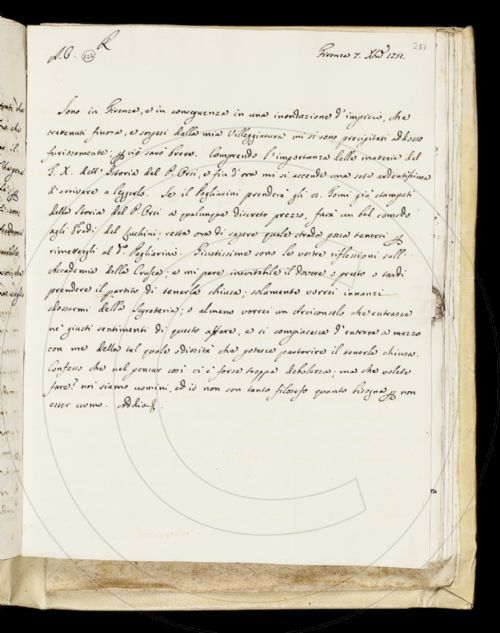 A.C. 122 R Firenze 7. Xbre 1751. 251
Sono in Firenze, e in conseguenza in una inondazione d'impicci, che
trattenuti finora, e sospesi dalla mia Villeggiatura mi si sono precipitati addosso
furiosamente; però sarò breve. Comprendo l'importanza della materia del
T. X. dell'Istoria del P. Orsi, e fin d'ora mi si accende una sete ardentissima
d'arrivare a leggerlo. Se il Pagliarini prenderà gli 11. Tomi già stampati
della Storia del P. Orsi a qualunque discreto prezzo, farà un bel comodo
agli Eredi del Zuchini; resta ora di sapere quale strada possa tenersi per
rimettergli al do. Pagliarini. Giustissime sono le vostre riflessioni sull'
Accademia della Crusca; e mi pare inevitabile il dovere o presto o tardi
prendere il partito di tenerla chiusa; solamente vorrei innanzi
dismettermi della Segreteria; o almeno vorrei un Arciconsolo che entrasse
ne' giusti sentimenti di questo affare, e si compiacesse d'entrare a mezzo
con me della tal quale odiosità che potesse partorire il tenerla chiusa.
Confesso che nel pensar così ci è forse troppa debolezza; ma che volete
fare? noi siamo uomini, ed io non son tanto filosofo quanto bisogna per non
esser uomo. Addio.